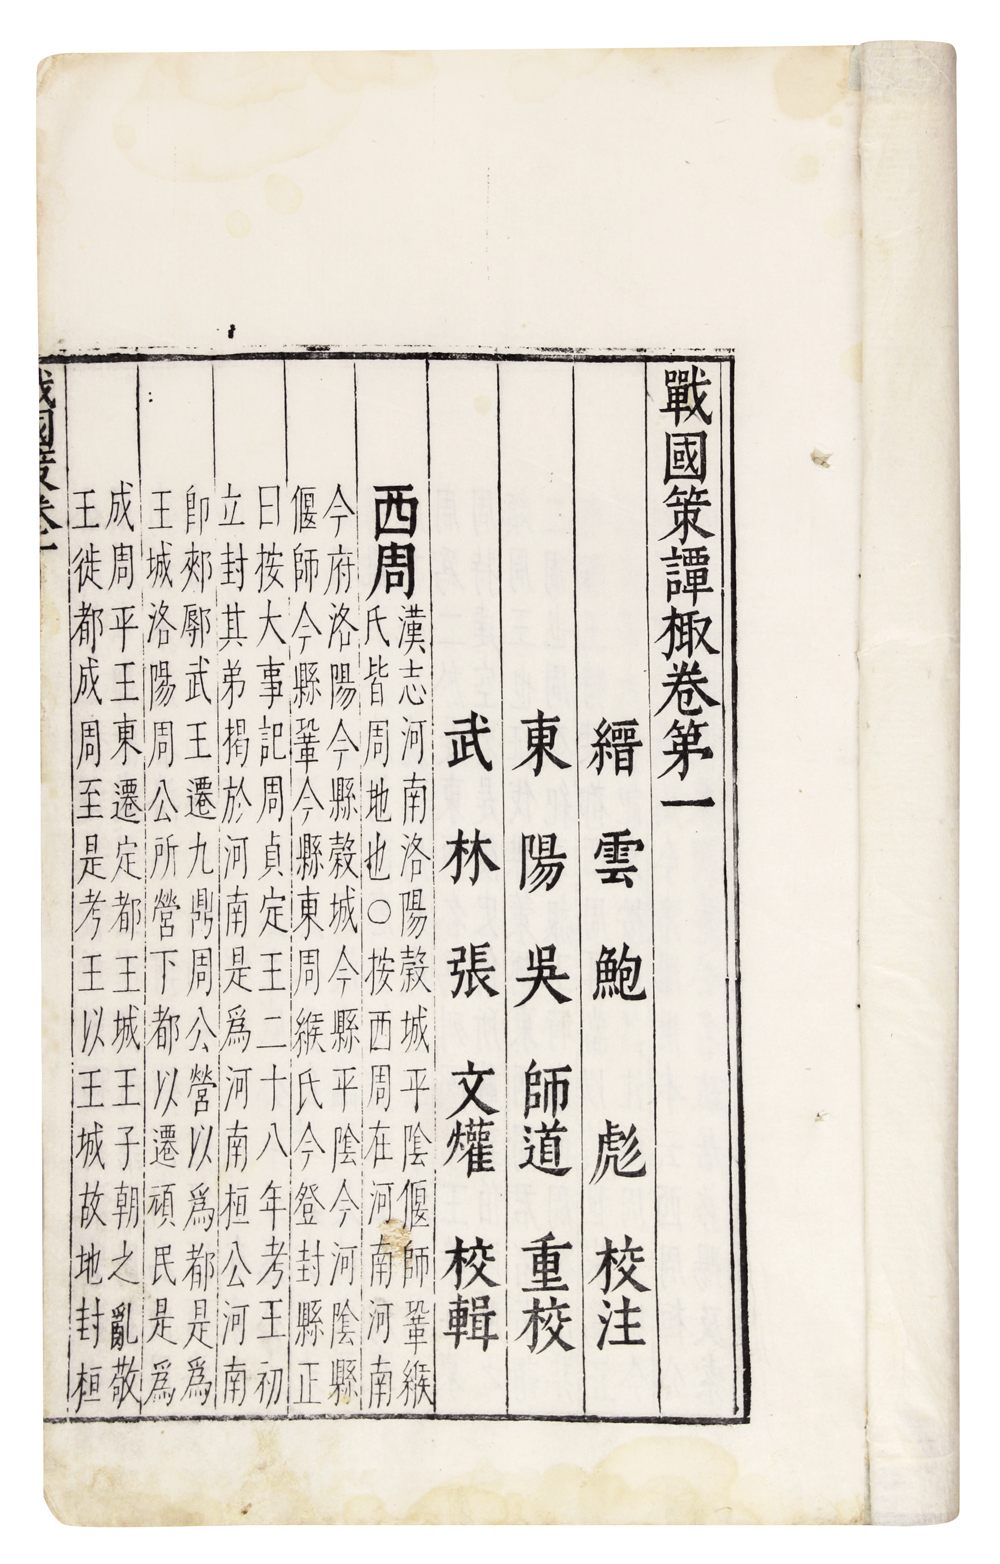 戰國策譚棷卷第一
縉雲鮑彪校注
東陽吳師道重校
武林張文爟校輯
西周
漢志河南洛陽穀城平陰偃師鞏緱
氏皆周地也○按西周在河南河南
今府洛陽今縣穀城今縣平陰今河陰縣
偃師今縣鞏今縣東周緱氏今登封縣正
曰按大事記周貞定王二十八年考王初
立封其弟揭於河南是爲河南桓公河南
卽郟鄏武王遷九鼎周公營以爲都是爲
王城洛陽周公所營下都以遷頑民是爲
成周平王東遷定都王城王子朝之亂敬
王徙都成周至是考王以王城故地封桓
戰國策卷一